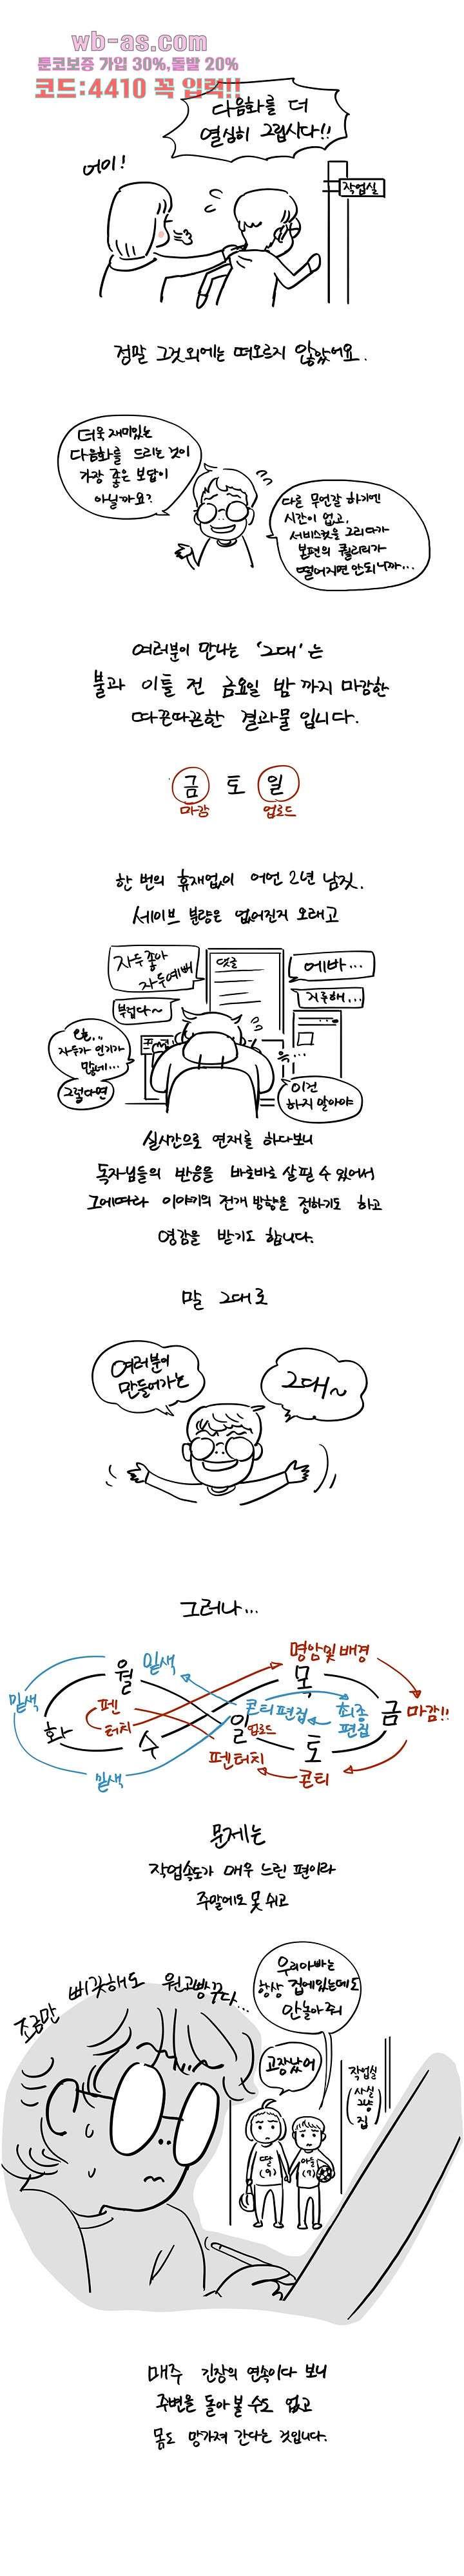 wb-as.com
툰코보증 가입 30%,돌발 20%
코드:4410 꼭 입력!!
다음화를 더
열심히 그립시다!!
어이!
작업실
정말 그것 외에는 떠오르지 않았어요.
더욱 재미있는
다음화를 드리는 것이
가장 좋은 보답이
아닐까요?
다른 무언갈 하기엔
시간이 없고,
서비스컷을 그리다가
본편의 퀄리티가
떨어지면 안되니까...
여러분이 만나는 '그대'는
불과 이틀 전 금요일 밤까지 마감한
따끈따끈한 결과물입니다.
금 토 일
마감 업로드
한 번의 휴재없이 어언 2년 남짓.
세이브 분량은 없어진지 오래고
자두좋아
자두예뻐
댓글
에바...
부럽다~
지루해...
자두가 인기가
많네...
그렇다면
윽...
이건
하지 말아야
실시간으로 연재를 하다보니
독자님들의 반응을 바로바로 살필 수 있어서
그에따라 이야기의 전개 방향을 정하기도 하고
영감을 받기도 합니다.
말 그대로
여러분이
만들어가는
그대~
그러나...
월 밑색
명암및배경
목
밑색
화
펜
터치
수
일
업로드
콘티편집
최종
편집
금 마감!!
토
펜터치
콘티
밑색
문제는
작업속도가 매우 느린 편이라
주말에도 못 쉬고
조금만 삐끗해도 원고빵꾸다...
우리아빠는
항상 집에있는데도
안놀아줘
고장났어
작업실
(사실
그냥
집)
딸
(9)
아들
(7)
매주 긴장의 연속이다 보니
주변을 돌아볼 수도 없고
몸도 망가져 간다는 것입니다.